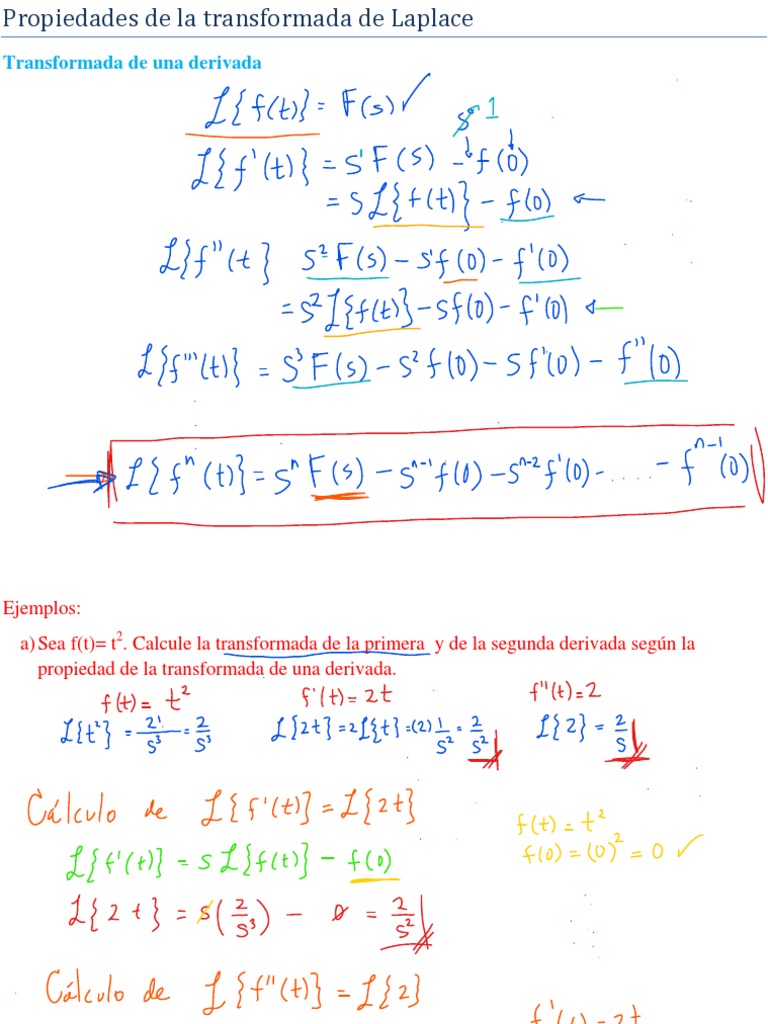 Propiedades de la transformada de Laplace
Transformada de una derivada
ℒ{f(t)} = F(s) ✓
s⁰ 1
ℒ{f'(t)} = s¹F(s) - f(0)
= sℒ{f(t)} - f(0) ←
ℒ{f''(t} s²F(s) - s¹f(0) - f'(0)
= s²ℒ{f(t)} - sf(0) - f'(0) ←
ℒ{f'''(t)} = s³F(s) - s²f(0) - sf'(0) - f''(0)
→ ℒ{fⁿ(t)} = sⁿF(s) - sⁿ⁻¹f(0) - sⁿ⁻²f'(0) - ..... - fⁿ⁻¹(0)
Ejemplos:
a) Sea f(t)= t². Calcule la transformada de la primera y de la segunda derivada según la
propiedad de la transformada de una derivada.
f(t) = t² f'(t) = 2t f''(t) = 2
ℒ{t²} = 2!/s³ = 2/s³ ℒ{2t} = 2ℒ{t} = (2) 1/s² = 2/s² ℒ{2} = 2/s
Cálculo de ℒ{f'(t)} = ℒ{2t}
f(t) = t²
ℒ{f'(t)} = sℒ{f(t)} - f(0)
f(0) = (0)² = 0 ✓
ℒ{2t} = s(2/s³) - 0 = 2/s²
Cálculo de ℒ{f''(t)} = ℒ{2}
f'(t) = 2t